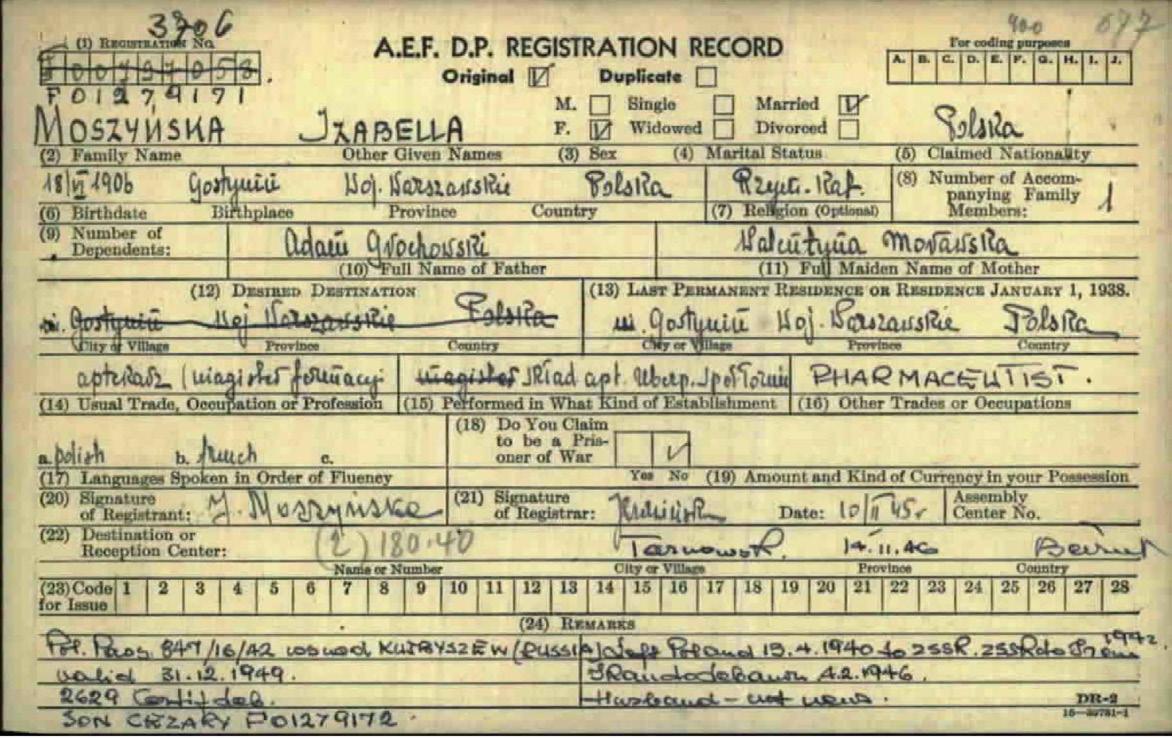 3706
(1) REGISTRATION NO.
00797058
F01279171
A.E.F. D.P. REGISTRATION RECORD
Original ☑ Duplicate ☐
400 677
For coding purposes
A. B. C. D. E. F. G. H. I. J.
M. ☐ Single ☐ Married ☑
F. ☑ Widowed ☐ Divorced ☐
MOSZYŃSKA IZABELLA Polska
(2) Family Name Other Given Names (3) Sex (4) Marital Status (5) Claimed Nationality
18/VI 1906 Gostynin Woj. Warszawskie Polska Rzym. Kat.
(6) Birthdate Birthplace Province Country (7) Religion (Optional)
(8) Number of Accompanying Family Members: 1
(9) Number of Dependents:
Adam Grochowski Walentyna Morawska
(10) Full Name of Father (11) Full Maiden Name of Mother
(12) DESIRED DESTINATION (13) LAST PERMANENT RESIDENCE OR RESIDENCE JANUARY 1, 1938.
m. Gostynin Woj Warszawskie Polska m. Gostynin Woj. Warszawskie Polska
City or Village Province Country City or Village Province Country
aptekarz (magister farmacji magister skład apt. Ubezp. Społeczni PHARMACEUTIST.
(14) Usual Trade, Occupation or Profession (15) Performed in What Kind of Establishment (16) Other Trades or Occupations
a. polish b. french c.
(17) Languages Spoken in Order of Fluency
(18) Do You Claim to be a Prisoner of War
Yes No (19) Amount and Kind of Currency in your Possession
(20) Signature of Registrant: J. Moszyńska (21) Signature of Registrar: Date: 10/II 45r Assembly Center No.
(22) Destination or Reception Center: (2) 180.40 14.11.46 Beirut
Name or Number City or Village Province Country
(23) Code for Issue 1 2 3 4 5 6 7 8 9 10 11 12 13 14 15 16 17 18 19 20 21 22 23 24 25 26 27 28
(24) REMARKS
Pol. Pass 847/16/42 issued KUJBYSZEW (RUSSIA) Left Poland 13.4.1940 to ZSSR. ZSSR to Iran 1942
valid 31.12.1949. Iran to Lebanon 4.2.1946.
2629 Husband - not news.
SON CEZARY F01279172
DR-2
16-39781-1